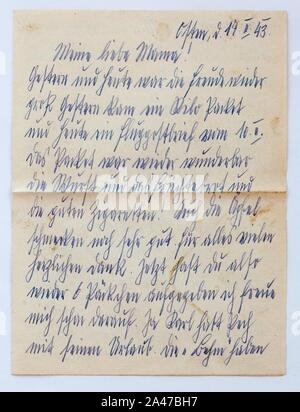 Osten, d. 17. II. 43.
Meine liebe Mama!
Gestern und heute war die Freude wieder
groß. Gestern kam ein Kilo Packet
und heute ein Fluggpostbrief vom 10. II.
Das Packet war wieder wunderbar
die Wurst und das und
die guten Zigaretten. die Äpfel
schmecken noch sehr gut. Für alles vielen
herzlichen Dank. Jetzt hast du also
wieder 6 Päckchen aufgegeben ich freue
mich schon darauf. Ja Karl hatt Pech
mit seinen Urlaub. die haben
alamy
Image ID: 2A47BH7
www.alamy.com